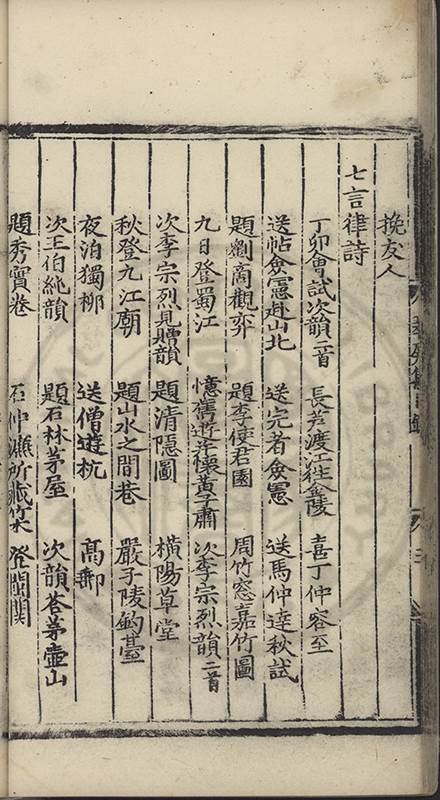 挽友人
七言律詩
丁卯會試次韻二首　長芦渡江徃金陵　喜丁仲容至
送帖僉憲赴山北　送完者僉憲　送馬仲達秋試
題劉商觀弈　題李使君園　周竹窓嘉竹圖
九日登蜀江　憶舊遊并懷黃子肅　次李宗烈韻二首
次李宗烈見贈韻　題清隱圖　橫陽草堂
秋登九江廟　題山水之間巷　嚴子陵釣臺
夜泊獨栁　送僧遊杭　髙郵
次王伯純韻　題石林茅屋　次韻答茅壺山
題秀實卷　石仲濂所藏　登閩関